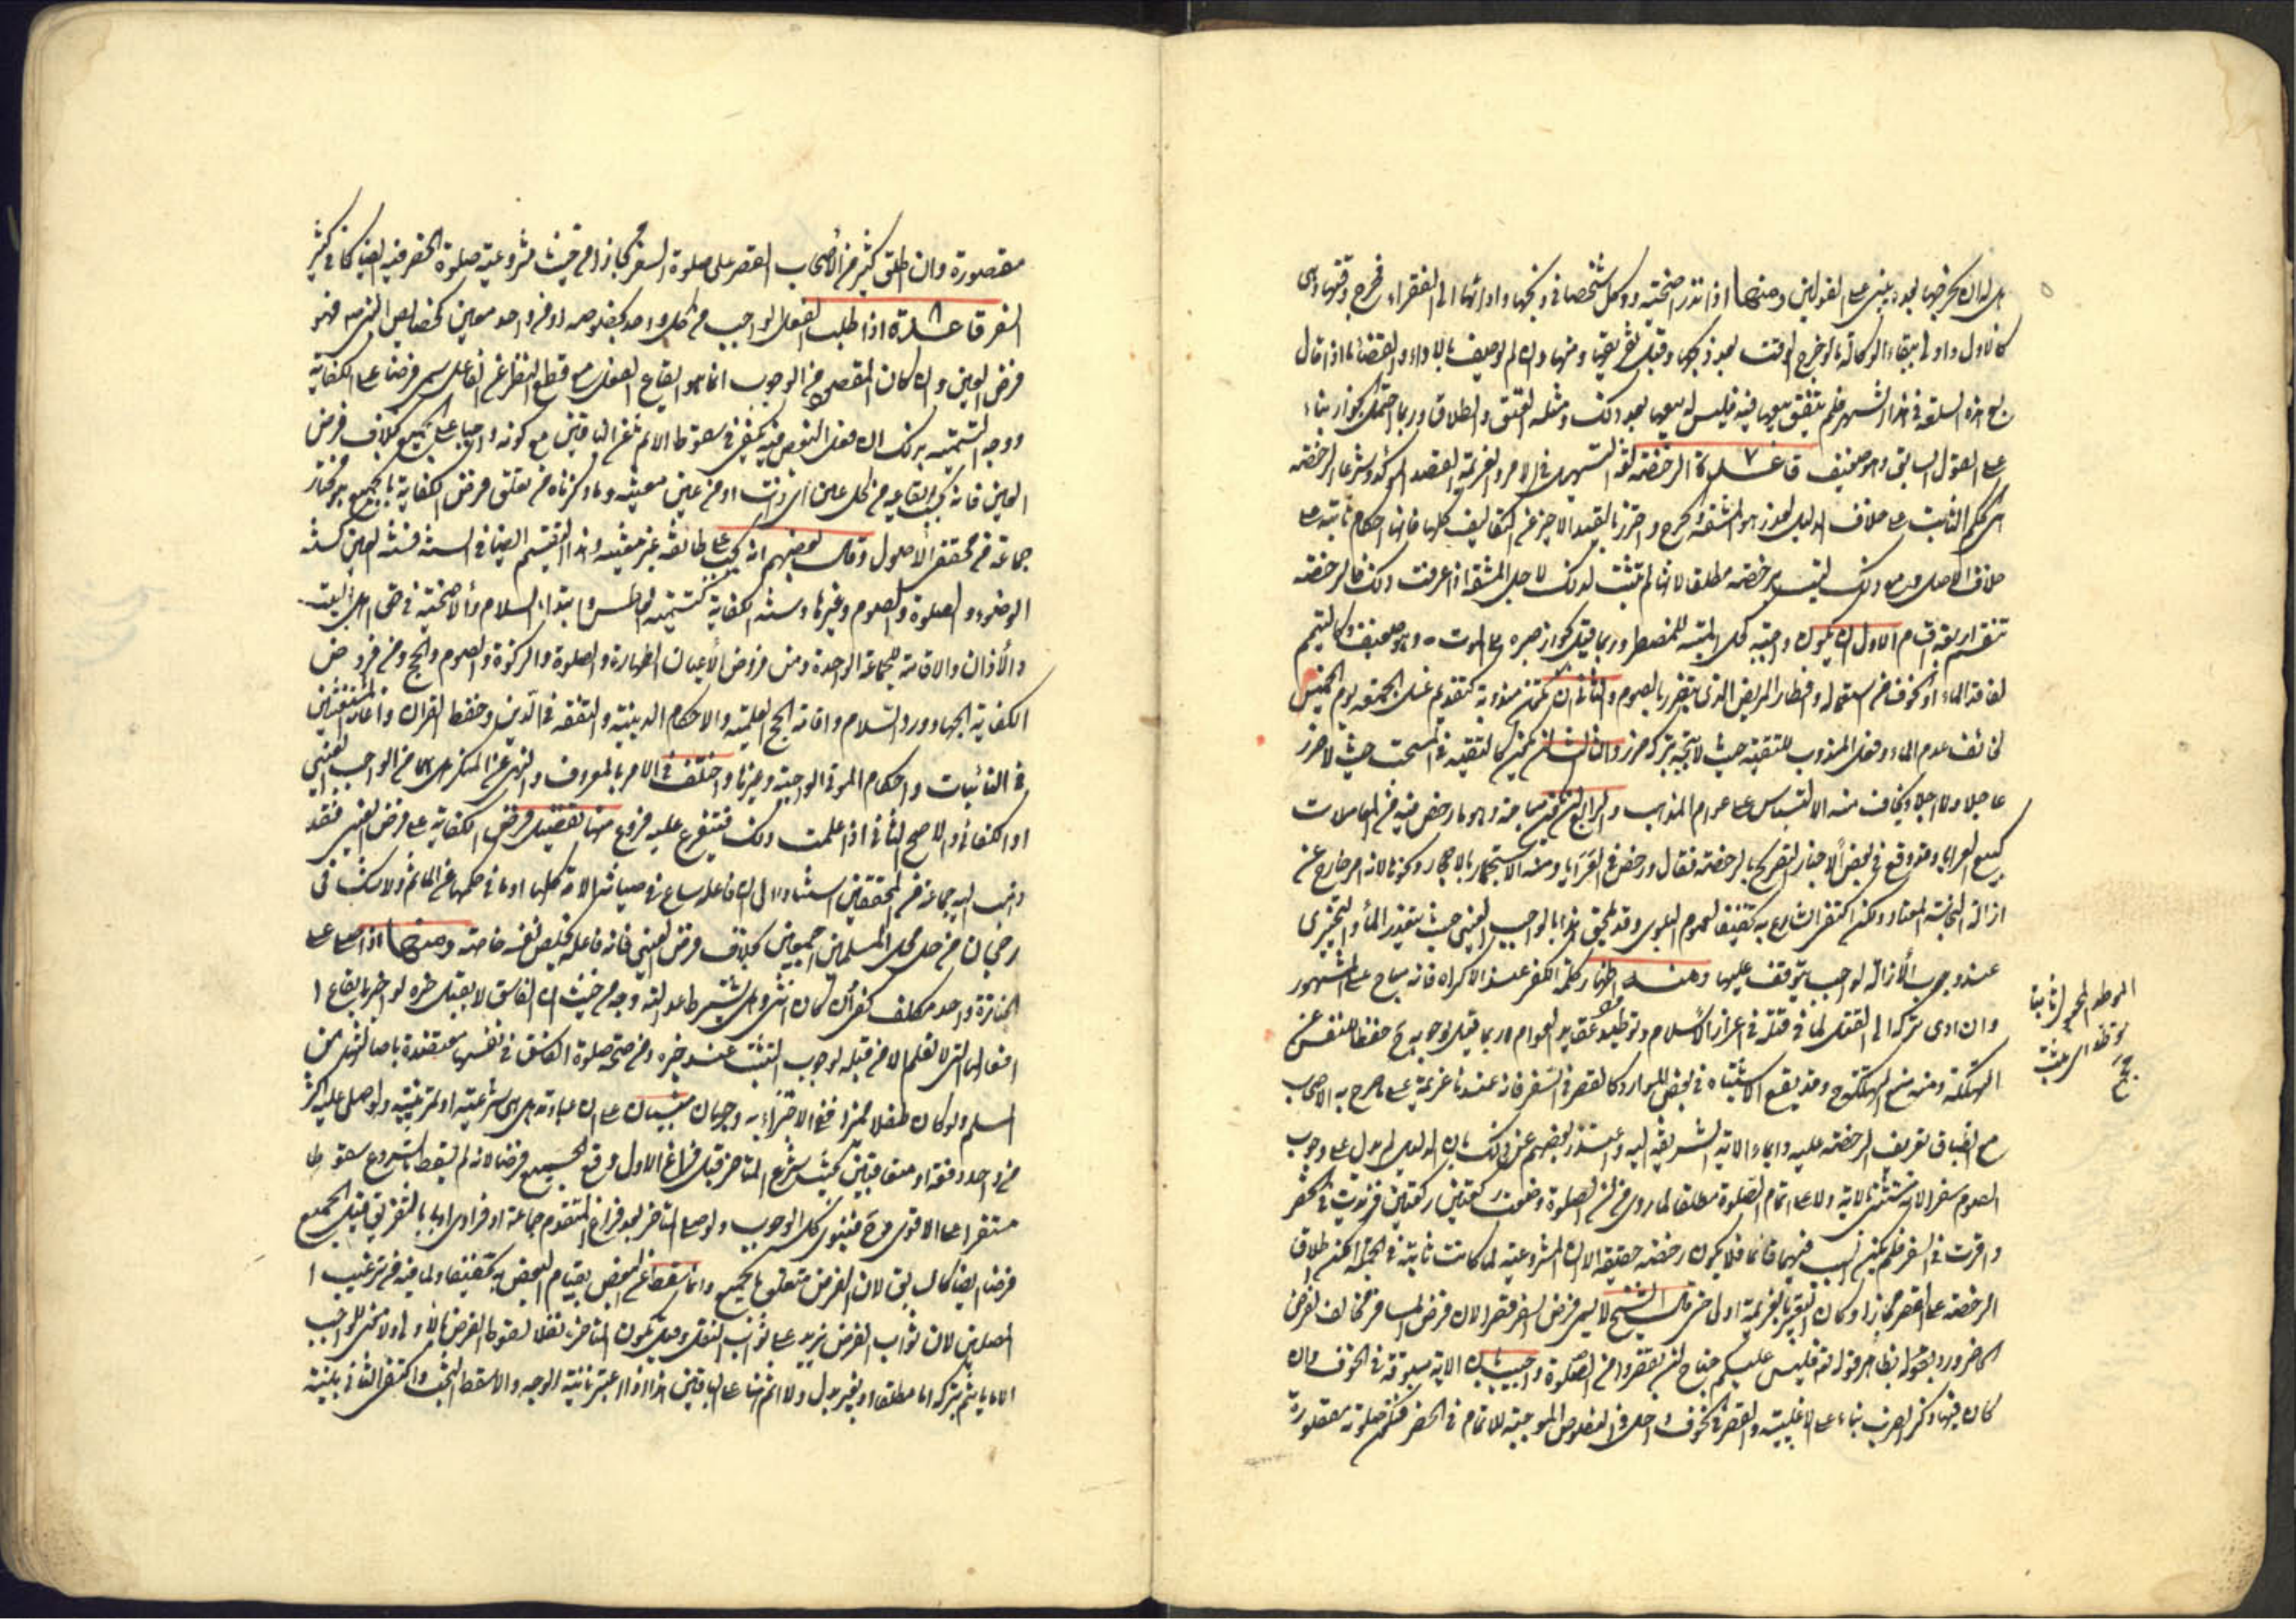 هل له ان يخرجها بعده يبنى على القولين ومنها اذا نذر اضحية ووكل شخصا في ذبحها وادائها الى الفقراء فخرج وقتها وهي
كالاول واولى ببقاء الوكالة بالوخرج الوقت بعد ذبحها وقبل تفريقها ومنها وان لم يوصف بالاداء والقضاء ما اذا قال
بع هذه السلعة في هذا الشهر فلم يتفق بيعها فيه فليس له بيعها بعد ذلك ومثله العتق والطلاق وربما احتمل الجواز بناء
على القول السابق وهو ضعيف قاعدة ٧ الرخصة لغة التسهيل في الامر والعزيمة القصد المؤكد وشرعا الرخصة
الحكم الثابت على خلاف الدليل لعذر هو المشقة والحرج واحترز بالقيد الاخير عن التكاليف كلها فانها احكام ثابتة على
خلاف الاصل ومع ذلك ليست برخصة مطلقا لانها لم تثبت لذلك لاجل المشقة اذا عرفت ذلك فالرخصة
تنقسم اربعة اقسام الاول ان يكون واجبة كحل الميتة للمضطر وربما قيل بجواز صبره على الموت وهو ضعيف وكالتيمم
لفاقد الماء او الخوف من استعماله وافطار المريض الذي يتضرر بالصوم والثاني ان تكون مندوبة كتقديم غسل الجمعة يوم الخميس
لخائف عدم الماء وفعل المندوب للتقية حيث لا يتجه بتركه ضرر والثالث ان يكون كالتقية في المستحب حيث لا ضرر
عاجلا ولا اجلا ويخاف منه الالتباس على عوام المذهب والرابع ان تكون مباحة وهو ما رخص فيه من المعاملات
كبيع العرايا وقد وقع في بعض الاخبار التصريح بالرخصة فقال ورخص في العرايا ومنه الاستجمار بالاحجار وكونه لانه امر خارج عن
ازالة النجاسة المعتاد ولكن اكتفى الشارع به تخفيفا لعموم البلوى وقد يلحق هذا بالواجب العيني حيث يتعذر الماء والتخييري
عند وجوب الازالة لواجب يتوقف عليها ومنه اظهار كلمة الكفر عند الاكراه فانه مباح على المشهور
وان ادى تركه الى القتل لما في قتله في اعزاز الاسلام وتوطيد عقايد العوام وربما قيل بوجوبه ح حفظا للنفس عن
التهلكة ومنه منع وقد يقع الاشتباه في بعض الموارد كالقصر في السفر فانه عندنا عزيمة على ما صرح به الاصحاب
مع انطباق تعريف الرخصة عليه وايماء الاية الشريفة اليه واعتذر بعضهم عن ذلك بان الدليل لم يدل على وجوب
الصوم سفرا لانه مستثنى بالاية ولا على اتمام الصلوة مطلقا لما روي من ان الصلوة وضعت ركعتين ركعتين فزيدت في الحضر
واقرت في السفر فلم يكن السبب فيهما قائما فلا يكون رخصة حقيقة الا ان المشروعية لما كانت ثابتة في الجملة امكن اطلاق
الرخصة على القصر مجازا وكان التعبير بالعزيمة اولى حتى قال الشيخ لا يسمى فرض السفر قصرا لان فرض المسافر مخالف لفرض
الحاضر ورد بقوله تعالى فليس عليكم جناح ان تقصروا من الصلوة واجيب بان الاية مسوقة في الخوف وان
كان فيها ذكر الضرب بناء على الاغلبية والقصر في الخوف داخل في النصوص الموجبة للاتمام في الحضر فتكون صلوته مقصورة
الوطد
توطد اي يثبت
مقصورة وان اطلق كثير من الاصحاب القصر على صلوة السفر مجازا من حيث مشروعية صلوة الحضر فيه ايضا كما في كثير
السفر قاعدة ٨ اذا طلب الفعل الواجب من كل واحد بخصوصه او من واحد معين كخصايص النبي ص فهو
فرض العين وان كان المقصود من الوجوب انما هو ايقاع الفعل مع قطع النظر عن الفاعل سمي فرضا على الكفاية
ووجه التسمية بذلك ان فعل البعض فيه يكفي في سقوط الاثم عن الباقين مع كونه واجبا على الجميع بخلاف فرض
العين فانه يجب ايقاعه من كل عين اي ذات او من عين معينة وما ذكرناه من تعلق فرض الكفاية بالجميع هو مختار
جماعة من محققي الاصول وقال بعضهم انه يجب على طائفة غير معينة وهذا التقسيم ايضا في السنة فسنة العين كسنة
الوضوء والصلوة والصوم وغيرها وسنة الكفاية كتسميت العاطس وابتداء السلام والاضحية في حق اهل البيت
والاذان والاقامة للجماعة الواحدة ومن فروض الاعيان الطهارة والصلوة والزكوة والصوم والحج ومن فروض
الكفاية الجهاد ورد السلام واقامة الحجج العلمية والاحكام الدينية والتفقه في الدين وحفظ القران واغاثة المستغيثين
في النائبات واحكام الموتى الواجبة وغيرها واختلف في الامر بالمعروف والنهي عن المنكر هل هما من الواجب العيني
او الكفائي والاصح الثاني اذا علمت ذلك فيتفرع عليه فروع منها تفضيل فرض الكفاية على فرض العين فقد
ذهب اليه جماعة من المحققين استنادا الى ان فاعله ساع في صيانة الامة كلها او ما في حكمها عن المأثم ولا شك في
رجحان من حل محل المسلمين اجمعين بخلاف فرض العيني فانه فاعله تخليص نفسه خاصة ومنها اذا صلى على
الجنازة واحد مكلف كفى وان كان انثى وهل يشترط عدالته وجه من حيث ان الفاسق لا يقبل خبره لو اخبر بايقاع
افعالها التي لا تعلم الا من قبله لوجوب التثبت عند خبره ومن صحة صلوة الفاسق في نفسها معتضدة باصالة
اسلم ولو كان طفلا مميزا ففي الاجتزاء به وجهان مبنيان على ان عبادته هل هي شرعية او تمرينية ولو صلى عليه اكثر
من واحد دفعة او متعاقبين بحيث شرع المتاخر قبل فراغ الاول وقع الجميع فرضا لانه لم يسقط بالشروع سقوطا
مستقرا على الاقوى وح فينوي كل الوجوب ولو صلى المتاخر بعد فراغ المتقدم جماعة او فرادى او بالتفريق قيل الجميع
فرضا ايضا كالسابق لان الفرض متعلق بالجميع وانما يسقط عن البعض بقيام البعض به تخفيفا ولما فيه من ترغيب
المصلين لان ثواب الفرض يزيد على ثواب النفل وقيل يكون المتاخر نفلا لسقوط الفرض بالاولى ولا معنى للواجب
الا ما يأثم بتركه اما مطلقا او بغير بدل ولا اثم هنا على الباقين هذا اذا اعتبرنا نية الوجه والا سقط البحث واكتفى الثاني بنية